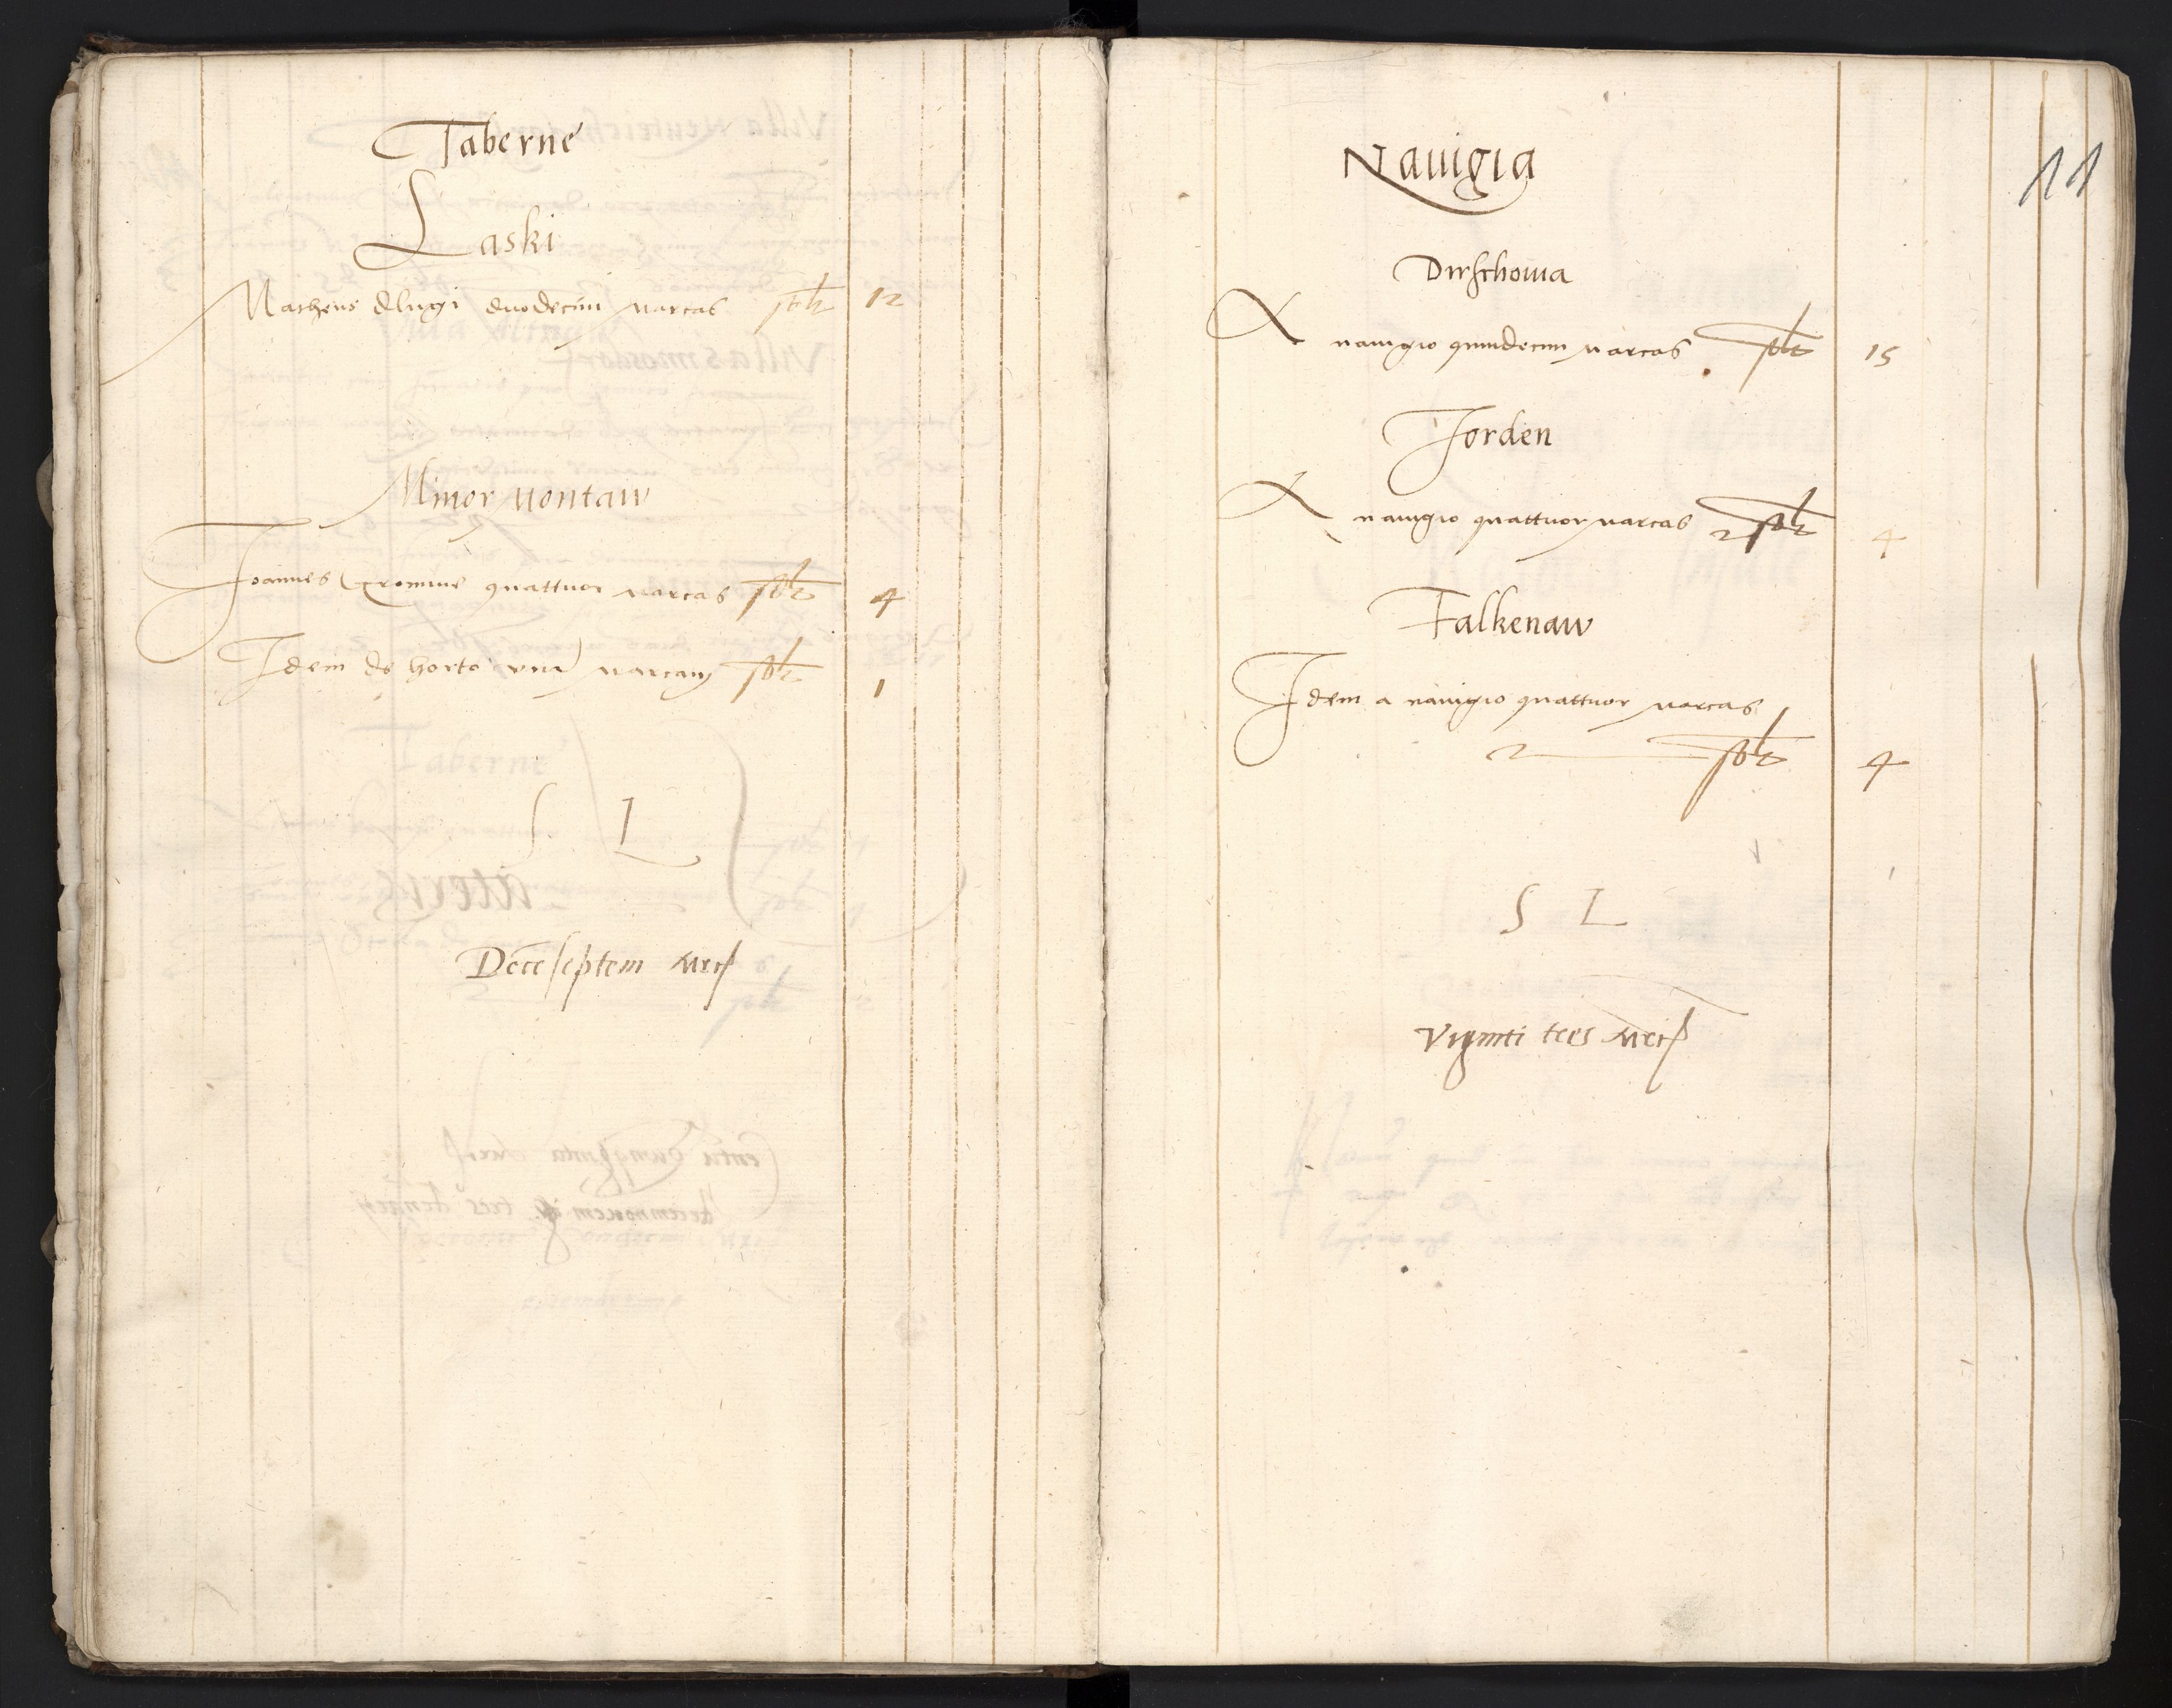 Taberne
Laski
Matheus dlugi duodecim marcas solt 12
Minor montaw
Joannes quattuor marcas solt 4
Idem de horto vna marcam solt 1
S L
Decēseptem mrc
11
Nauigia
Dirschouia
A nauigio quindecim marcas solt 15
Jorden
A nauigio quattuor marcas solt 4
Falkenaw
Idem a nauigio quattuor marcas
solt 4
S L
Viginti tres mrc